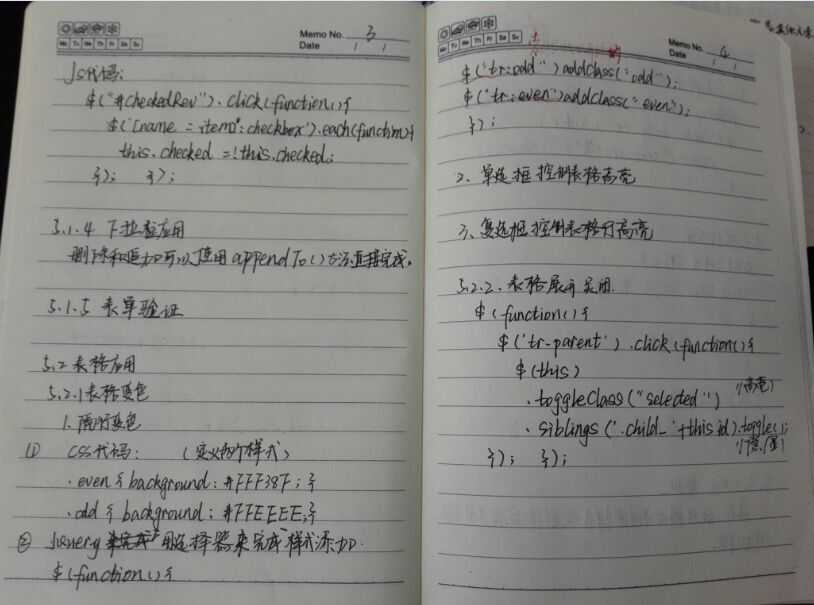 Memo No. 3
Mo Tu We Th Fr Sa Su
Date / /
Js代码:
$("#CheckedRev").click(function(){
$('[name=item]:checkbox').each(function(){
this.checked =!this.checked;
}); });
5.1.4 下拉框应用
删除和追加可以使用appendTo()方法直接完成。
5.1.5 表单验证
5.2 表格应用
5.2.1 表格变色
1. 隔行变色
① CSS代码: (定义两个样式)
.even { background: #FFF38F; }
.odd { background: #FFEEEE; }
② Jquery 用选择器来完成样式添加.
$(function(){
Memo No. 4
Mo Tu We Th Fr Sa Su
Date / /
$("tr:odd") addClass("odd");
$("tr:even") addClass("even");
});
2、单选框控制表格高亮
3、复选框控制表格行高亮
5.2.2、表格展开关闭
$(function(){
$('tr.parent').click(function(){
$(this)
.toggleClass("selected") //(高亮)
.siblings('.child_'+this.id).toggle();
//(隐/显)
}); });